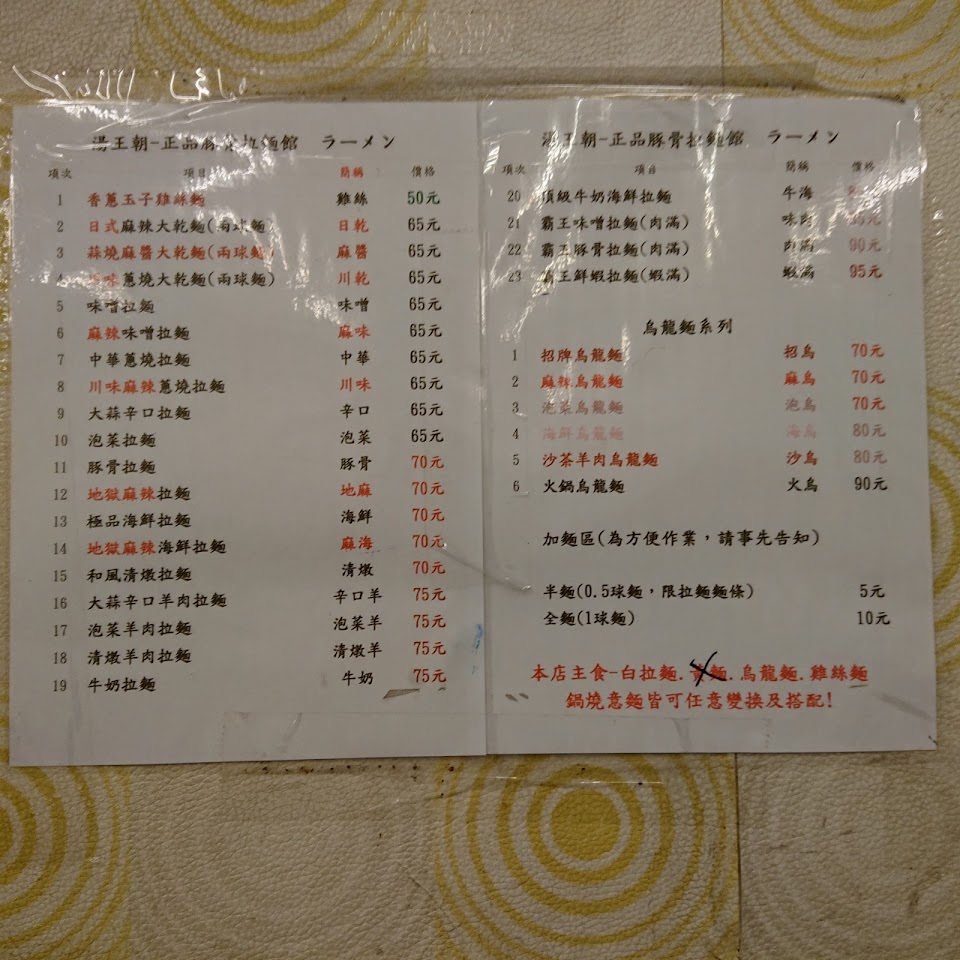 湯王朝-正品豚骨拉麵館 ラーメン
項次 項目 簡稱 價格
1 香蔥玉子雞絲麵 雞絲 50元
2 日式麻辣大乾麵(兩球麵) 日乾 65元
3 蒜燒麻醬大乾麵(兩球麵) 麻醬 65元
4 味蔥燒大乾麵(兩球麵) 川乾 65元
5 味噌拉麵 味噌 65元
6 麻辣味噌拉麵 麻味 65元
7 中華蔥燒拉麵 中華 65元
8 川味麻辣蔥燒拉麵 川味 65元
9 大蒜辛口拉麵 辛口 65元
10 泡菜拉麵 泡菜 65元
11 豚骨拉麵 豚骨 70元
12 地獄麻辣拉麵 地麻 70元
13 極品海鮮拉麵 海鮮 70元
14 地獄麻辣海鮮拉麵 麻海 70元
15 和風清燉拉麵 清燉 70元
16 大蒜辛口羊肉拉麵 辛口羊 75元
17 泡菜羊肉拉麵 泡菜羊 75元
18 清燉羊肉拉麵 清燉羊 75元
19 牛奶拉麵 牛奶 75元
湯王朝-正品豚骨拉麵館 ラーメン
項次 項目 簡稱 價格
20 頂級牛奶海鮮拉麵 牛海
21 霸王味噌拉麵(肉滿) 味肉
22 霸王豚骨拉麵(肉滿) 肉滿 90元
23 霸王鮮蝦拉麵(蝦滿) 蝦滿 95元
烏龍麵系列
1 招牌烏龍麵 招烏 70元
2 麻辣烏龍麵 麻烏 70元
3 泡菜烏龍麵 泡烏 70元
4 海鮮烏龍麵 海烏 80元
5 沙茶羊肉烏龍麵 沙烏 80元
6 火鍋烏龍麵 火烏 90元
加麵區(為方便作業，請事先告知)
半麵(0.5球麵，限拉麵麵條) 5元
全麵(1球麵) 10元
本店主食-白拉麵.黃麵.烏龍麵.雞絲麵
鍋燒意麵皆可任意變換及搭配!